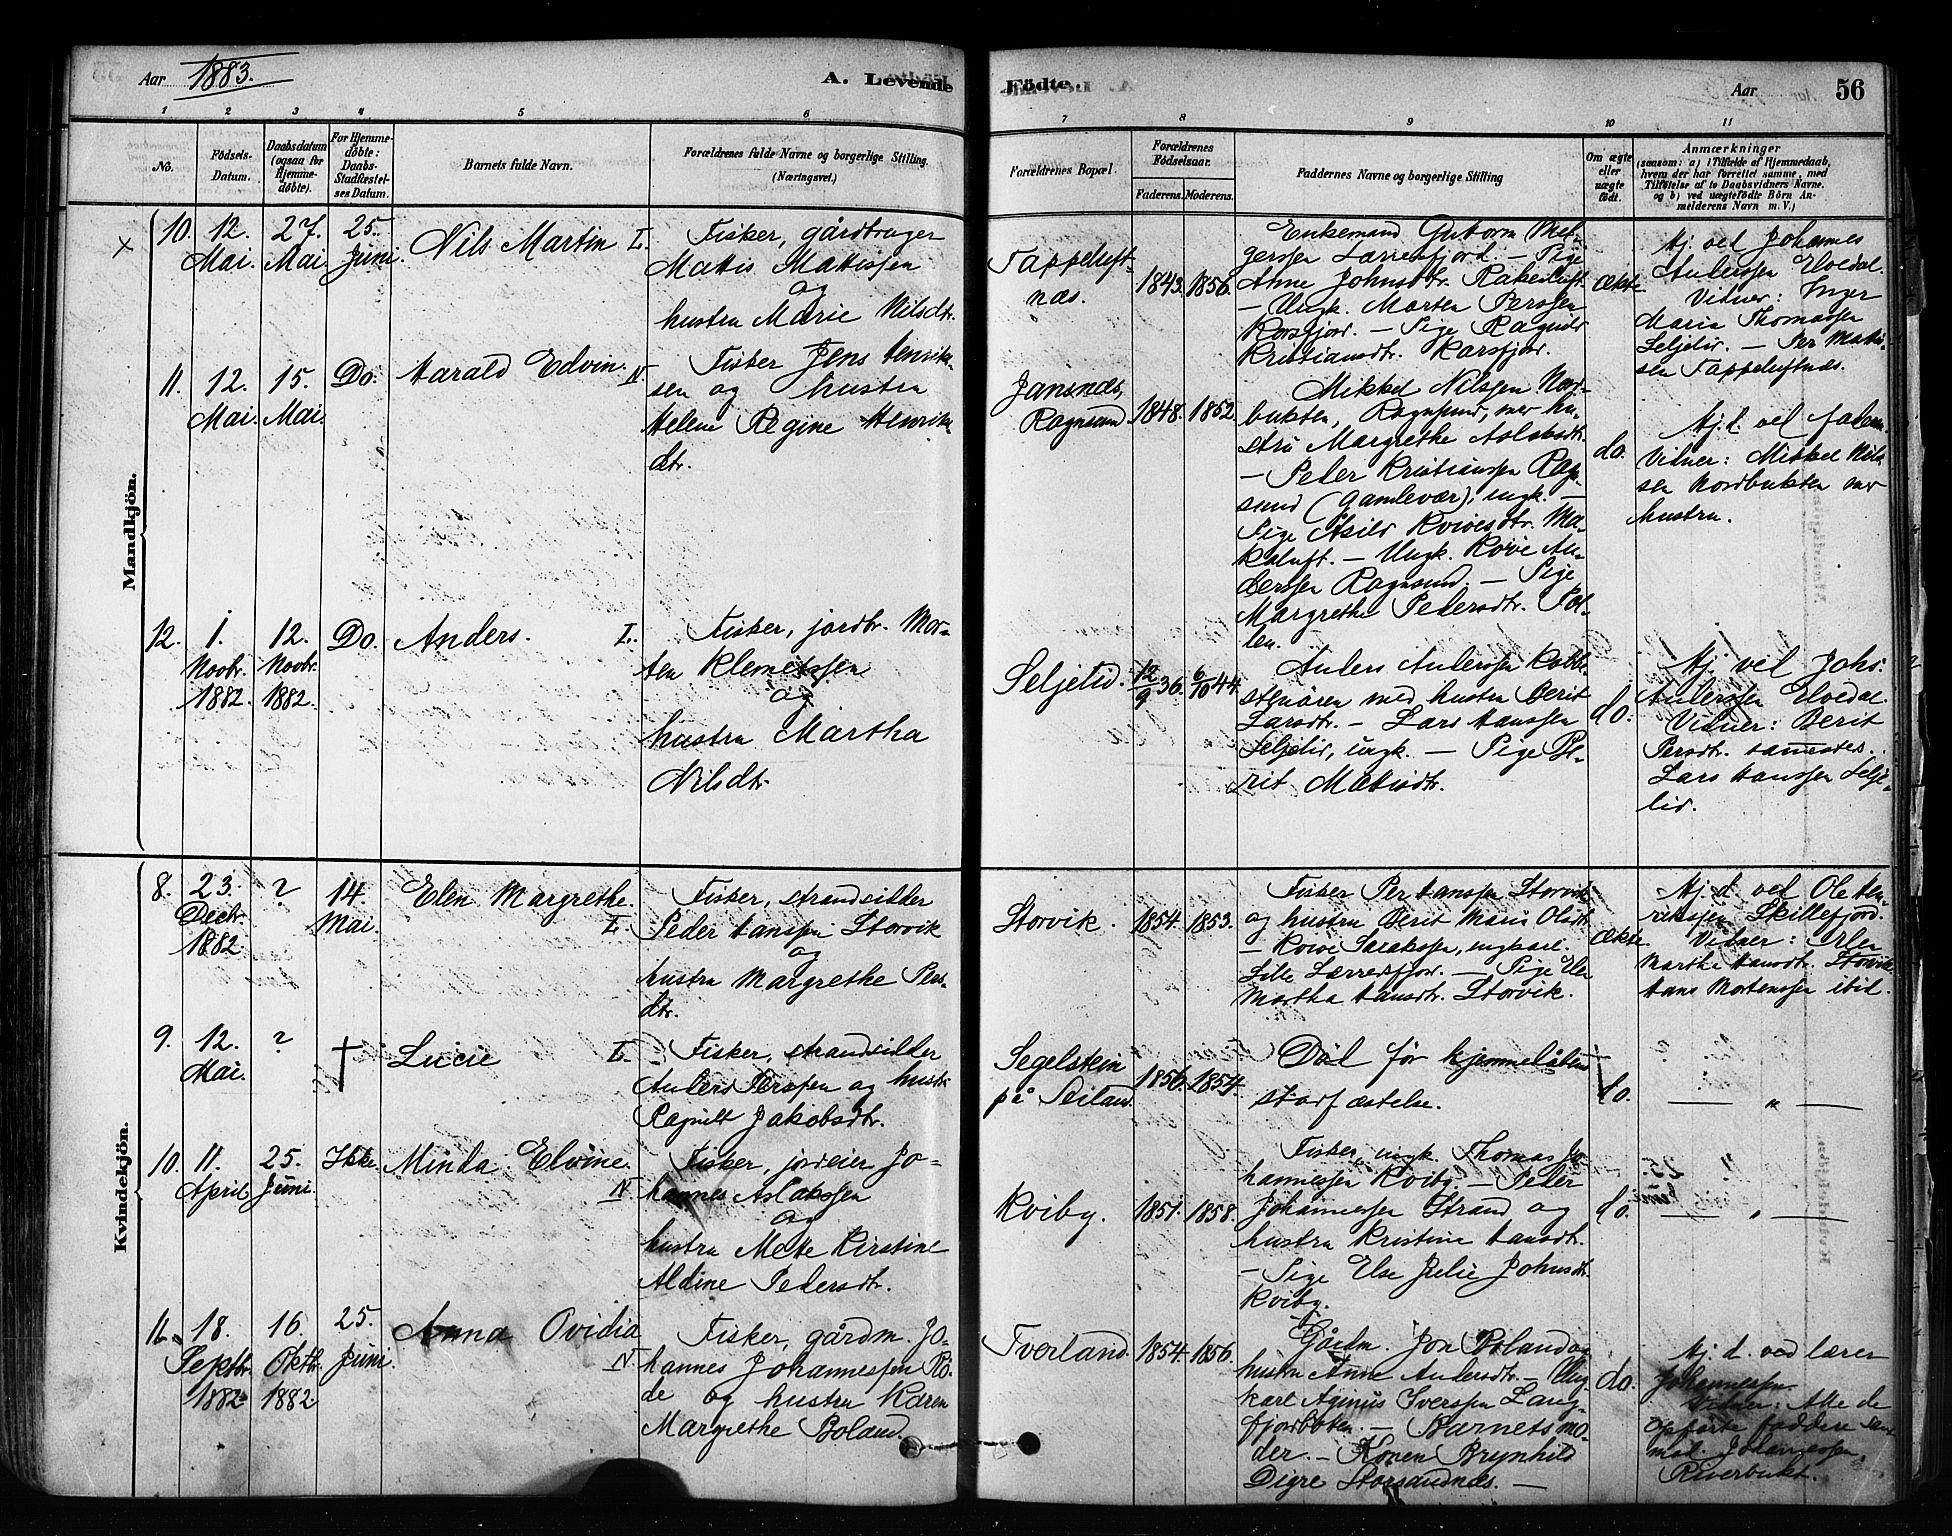 Aar 1883.
A. Levende
Födte.
Aar
56
1 2 3 4 5 6
7 8 9 10 11
No.
Födsels-
Datum.
Daabsdatum
(ogsaa for
Hjemme-
döbte).
For Hjemme-
döbte:
Daabs-
Stadfæstel-
ses Datum.
Barnets fulde Navn.
Forældrenes fulde Navne og borgerlige Stilling.
(Næringsvei.)
Forældrenes Bopæl.
Forældrenes
Födselsaar.
Faderens. Moderens.
Faddernes Navne og borgerlige Stilling
Om ægte
eller
uægte
födt.
Anmærkninger
(saasom: a) i Tilfælde af Hjemmedaab,
hvem der har forrettet samme, med
Tilföielse af to Daabsvidners Navne,
og b) ved uægtefödte Börn An-
melderens Navn m. V.)
Mandkjön.
10. 12. Mai. 27. Mai 25. Juni. Nils Martin L.
Fisker, gårdbruger
Mattis Mattissen
og
hustru Marie Nilsdtr.
Tappeluft-
næs.
1843. 1856.
Enkemand Guttorm
Lærresfjord. — Pige
Anne Johnsdtr.
— Ungk. Morten Perssen
Korsfjord. — Pige Ragnild
Kristiansdtr. Korsfjor.
Ækte
Hj. ved Johannes
Anderssen Elvedal.
Vidner: Inger
Maria Thomassen
Seljelid. — Per Matis-
sen Tappeluftnæs.
11. 12. Mai. 15. Mai. Do. Harald Edvin. N
Fisker Jens Henrik-
sen og hustru
Helene Regine Henriks-
dtr.
Jansnæs,
Rognsund
1848. 1852.
Mikkel Nilsen Nord-
bukten, Rognsund, med hu-
stru Margrethe Aslaksdtr.
— Peder Kristianssen Rogn-
sund (Gamlevær), ungk. —
Pige
— Ungk. An-
derssen Rognsund. — Pige
Margrethe Pedersdtr. Pol-
len.
do.
Hj. d. ved faderen
Vidner: Mikkel Nil-
sen Nordbukten med
hustru.
12. 1. Novbr. 1882. 12. Novbr. 1882. Do. Anders. L.
Fisker, jordbr. Mor-
ten Klemetssen
og
hustru Martha
Nilsdtr.
Seljelid.
12/9 36. 6/10 44.
Anders Anderssen
med hustru Berit
Larsdtr. — Lars Hanssen
Seljelid, ungk. — Pige Be-
rit Matisdtr.
do.
Hj. ved Johs.
Anderssen Elvedal.
Vidner: Berit
Persdtr. sammesteds.
Lars Hanssen Selje-
lid.
Kvindekjön.
8. 23. Decbr. 1882 ? 14. Mai. Elen Margrethe. L.
Fisker, strandsidder
Peder Hanssen Storvik
og
hustru Margrethe Pers-
dtr.
Storvik.
1854. 1853.
Fisker Per Hanssen Storvik
og hustru Berit Maria Olsdtr.
— ungkarl.
Lille Lærresfjor. — Pige Elen
Martha Hansdtr. Storvik.
Ækte
Hj. d. ved Ole Hen-
rikssen Skillefjord.
Vidner: Elen
Martha Hansdtr. Storvik
Hans Mortenssen ibid.
9. 12. Mai. ? † Lucie L.
Fisker, strandsidder
Anders Perssen og hustr.
Ragnilt Jakobsdtr.
Segelsten
på Seiland.
1856. 1854.
Död för hjemmedåbens
stadfæstelse.
do.
— " —
10. 11. April 25. Juni. Ikke Minda Elvine. N
Fisker, jordeier Jo-
hannes Aslakssen
og
hustru Mette Kirstine
Aldine Pedersdtr.
Kviby.
1851. 1858.
Fisker, ungk. Thomas Jo-
hannessen Kviby. — Peder
Johannessen Strand og
hustru Kristine Hansdtr.
— Pige Else Julie Johnsdtr.
Kviby.
do.
— " —
11. 18. Septbr. 1882 16. Oktb. 1882 25. Juni. Anna Ovidia N.
Fisker, gårdm. Jo-
hannes Johannessen Ro-
de og hustru Karen
Margrethe Boland.
Tverland.
1854. 1856.
Gårdm. Jon Boland og
hustru Anne Andersdtr. — Ung-
karl Aginus Iverssen Lang-
fjordboten. — Barnets mo-
der. — Konen Brynhild
Digre Storsandnæs. —
do.
Hj. d. ved lærer
Johannessen.
Vidner: Alle de
opförte faddere
Johannessen
Riverbukt.